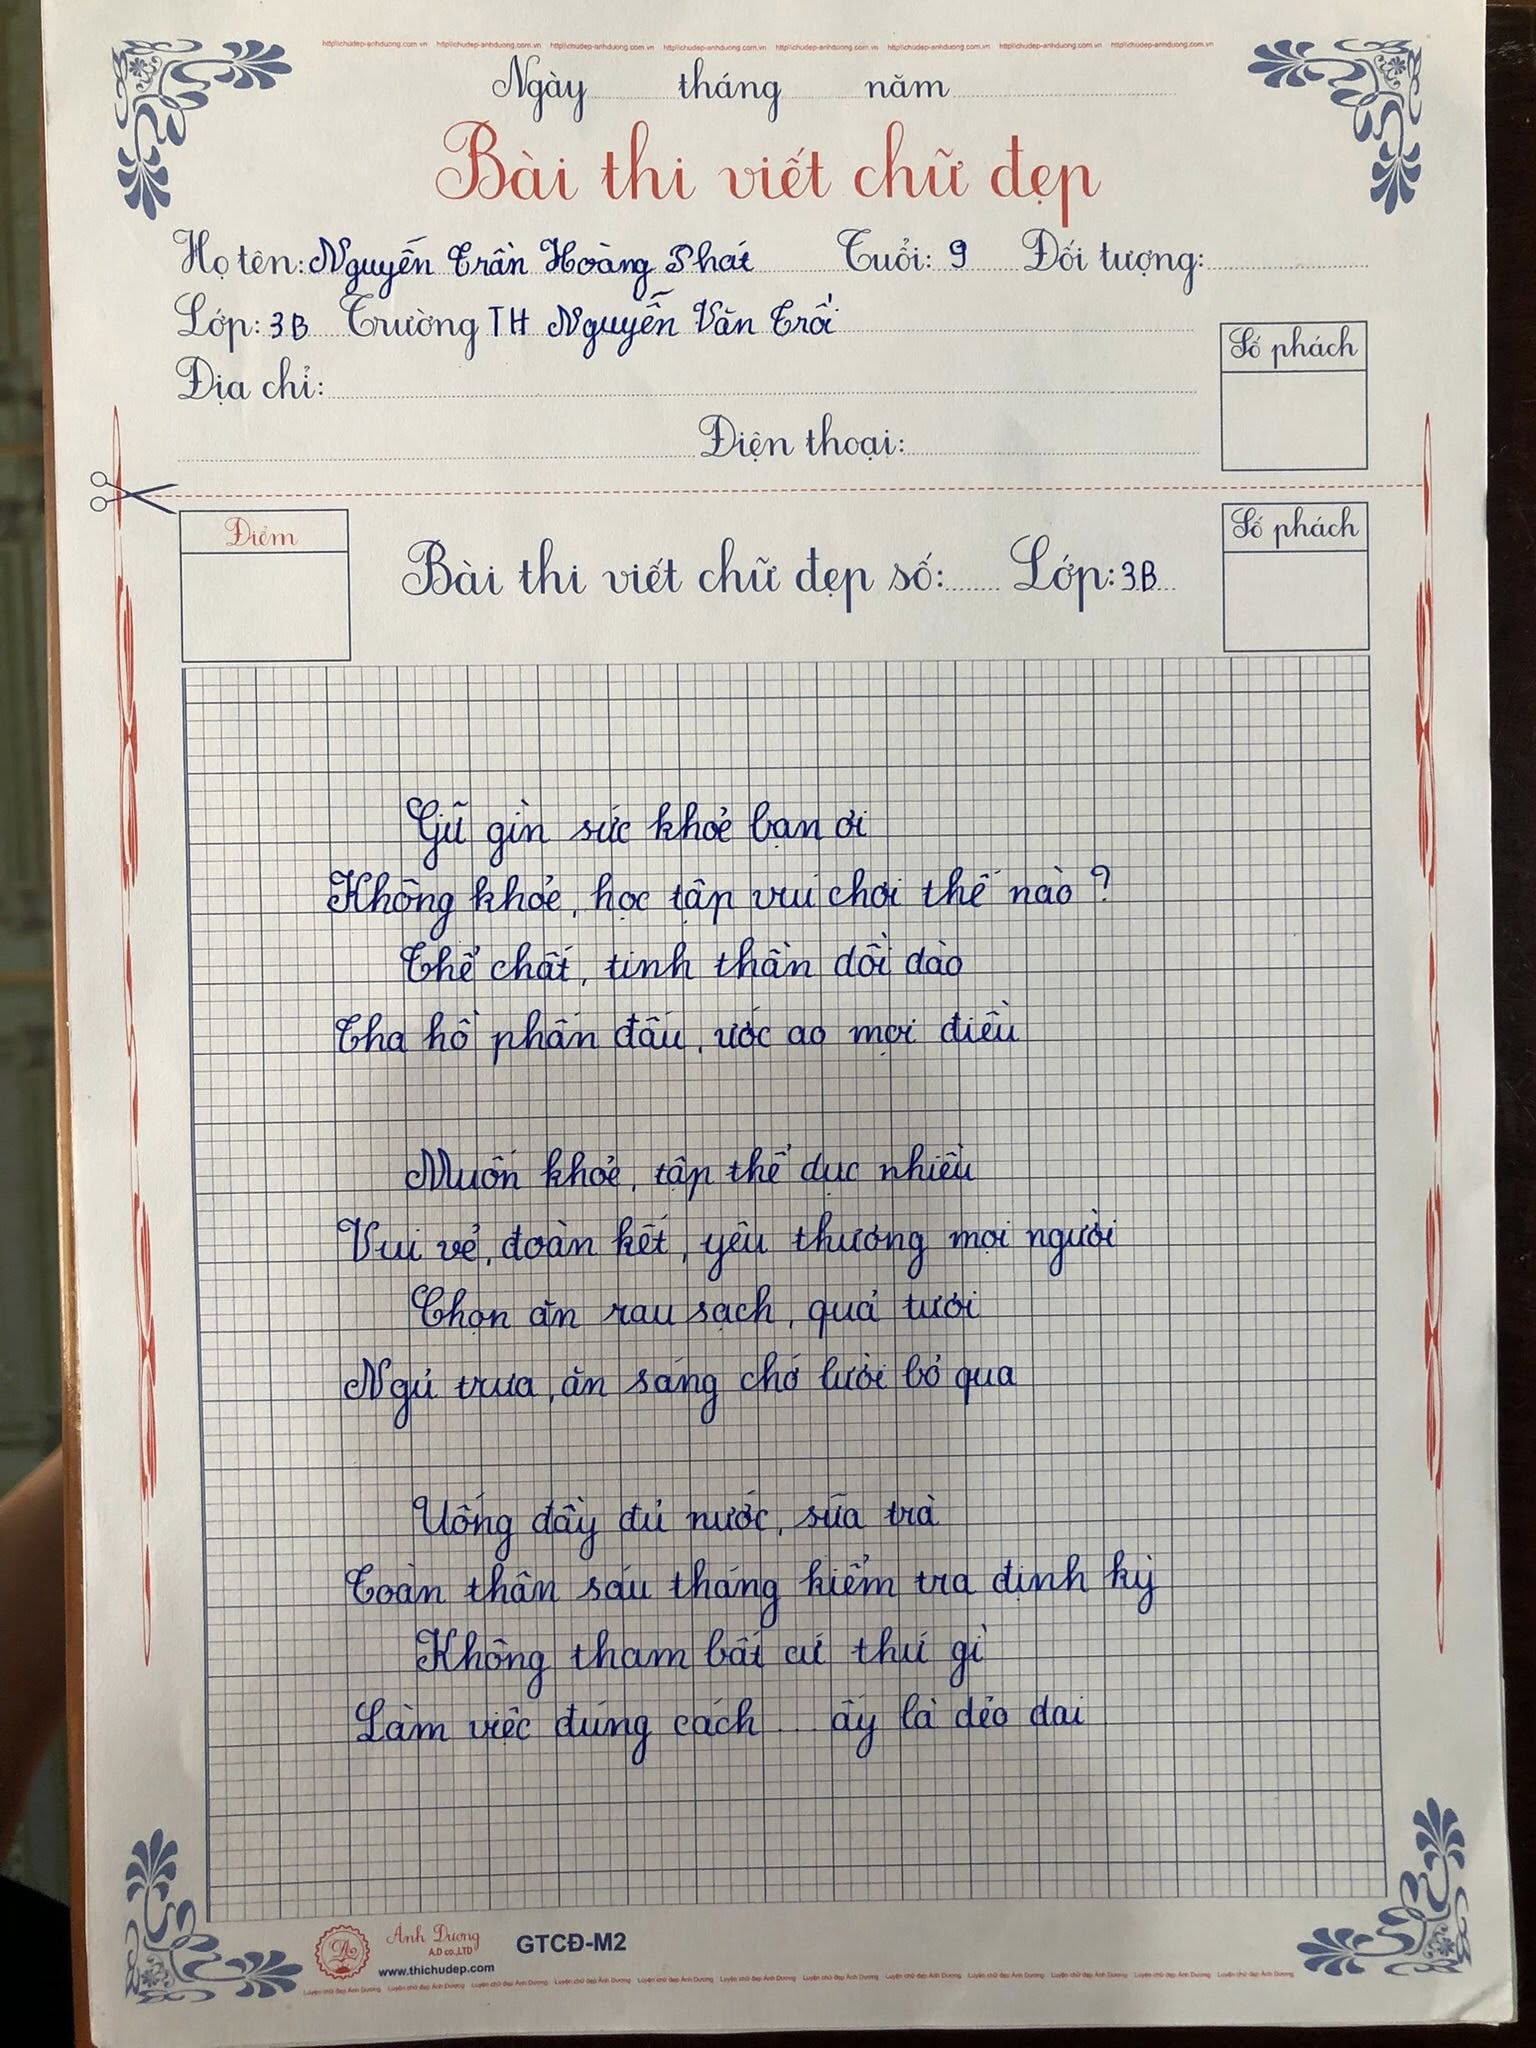 http\\chudep-anhduong.com.vn http\\chudep-anhduong.com.vn http\\chudep-anhduong.com.vn http\\chudep-anhduong.com.vn http\\chudep-anhduong.com.vn http\\chudep-anhduong.com.vn http\\chudep-anhduong.com.vn http\\chudep-anhduong.com.vn
Ngày tháng năm
Bài thi viết chữ đẹp
Họ tên: Nguyễn Trần Hoàng Phát Tuổi: 9 Đối tượng:
Lớp: 3B Trường TH Nguyễn Văn Trỗi
Số phách
Địa chỉ:
Điện thoại:
Điểm
Số phách
Bài thi viết chữ đẹp số: Lớp: 3B
Giữ gìn sức khoẻ bạn ơi
Không khoẻ, học tập vui chơi thế nào?
Thể chất, tinh thần dồi dào
Tha hồ phấn đấu, ước ao mọi điều
Muốn khoẻ, tập thể dục nhiều
Vui vẻ, đoàn kết, yêu thương mọi người
Chọn ăn rau sạch, quả tươi
Ngủ trưa, ăn sáng chớ lười bỏ qua
Uống đầy đủ nước, sữa trà
Toàn thân sáu tháng kiểm tra định kỳ
Không tham bất cứ thứ gì
Làm việc đúng cách... ấy là dẻo dai
Ánh Dương
A.D co.,LTD
GTCĐ-M2
www.thichudep.com
Luyện chữ đẹp Ánh Dương Luyện chữ đẹp Ánh Dương Luyện chữ đẹp Ánh Dương Luyện chữ đẹp Ánh Dương Luyện chữ đẹp Ánh Dương Luyện chữ đẹp Ánh Dương Luyện chữ đẹp Ánh Dương Luyện chữ đẹp Ánh Dương Luyện chữ đẹp Ánh Dương Luyện chữ đẹp Ánh Dương Luyện chữ đẹp Ánh Dương Luyện chữ đẹp Ánh Dương